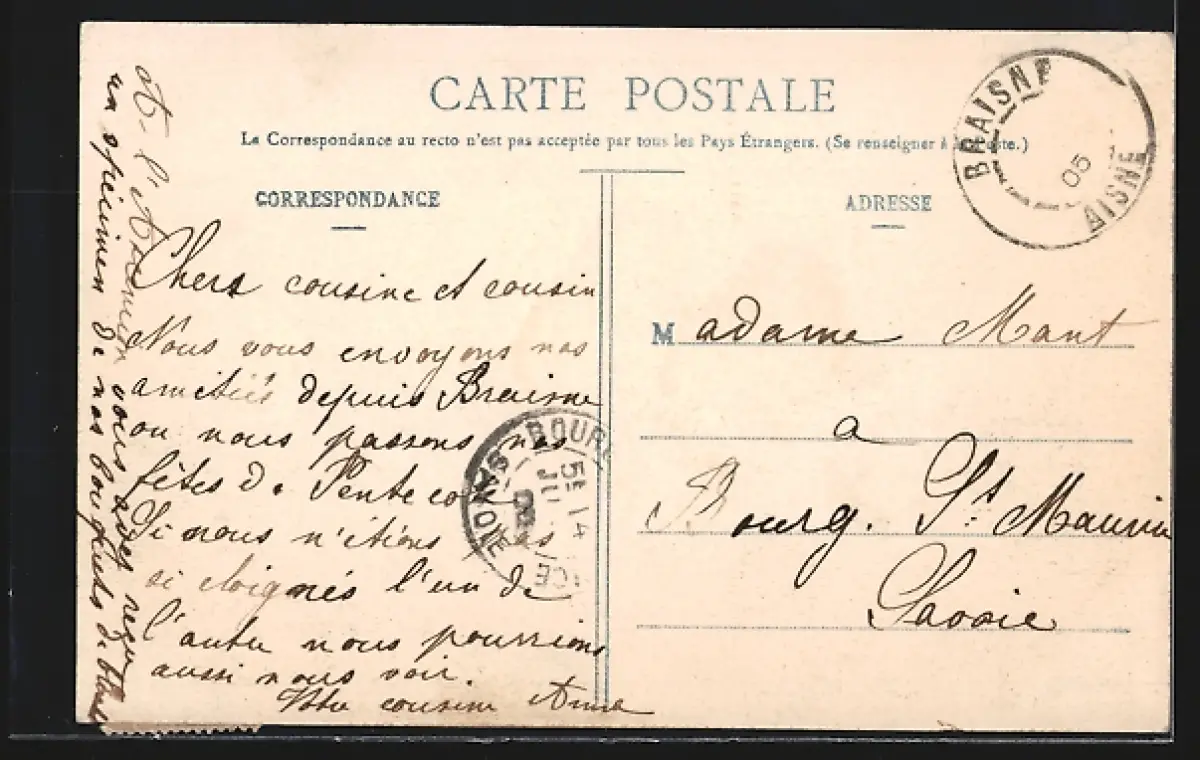 CARTE POSTALE
La Correspondance au recto n'est pas acceptée par tous les Pays Étrangers. (Se renseigner à la Poste.)
CORRESPONDANCE
ADRESSE
BRAISNE
05
AISNE
Chers cousine et cousin
Nous vous envoyons nos
amitiés depuis Braisne
ou nous passons nos
fêtes de Pentecote
Si nous n'étions pas
si éloignés l'un de
l'autre nous pourrions
aussi nous voir.
Votre cousine Anna
A l'Ascension vous avez reçu
un spécimen de nos bouquets de
Madame Mant
a
Bourg. St Mauric
Savoie
BOUR
SAVOIE
14